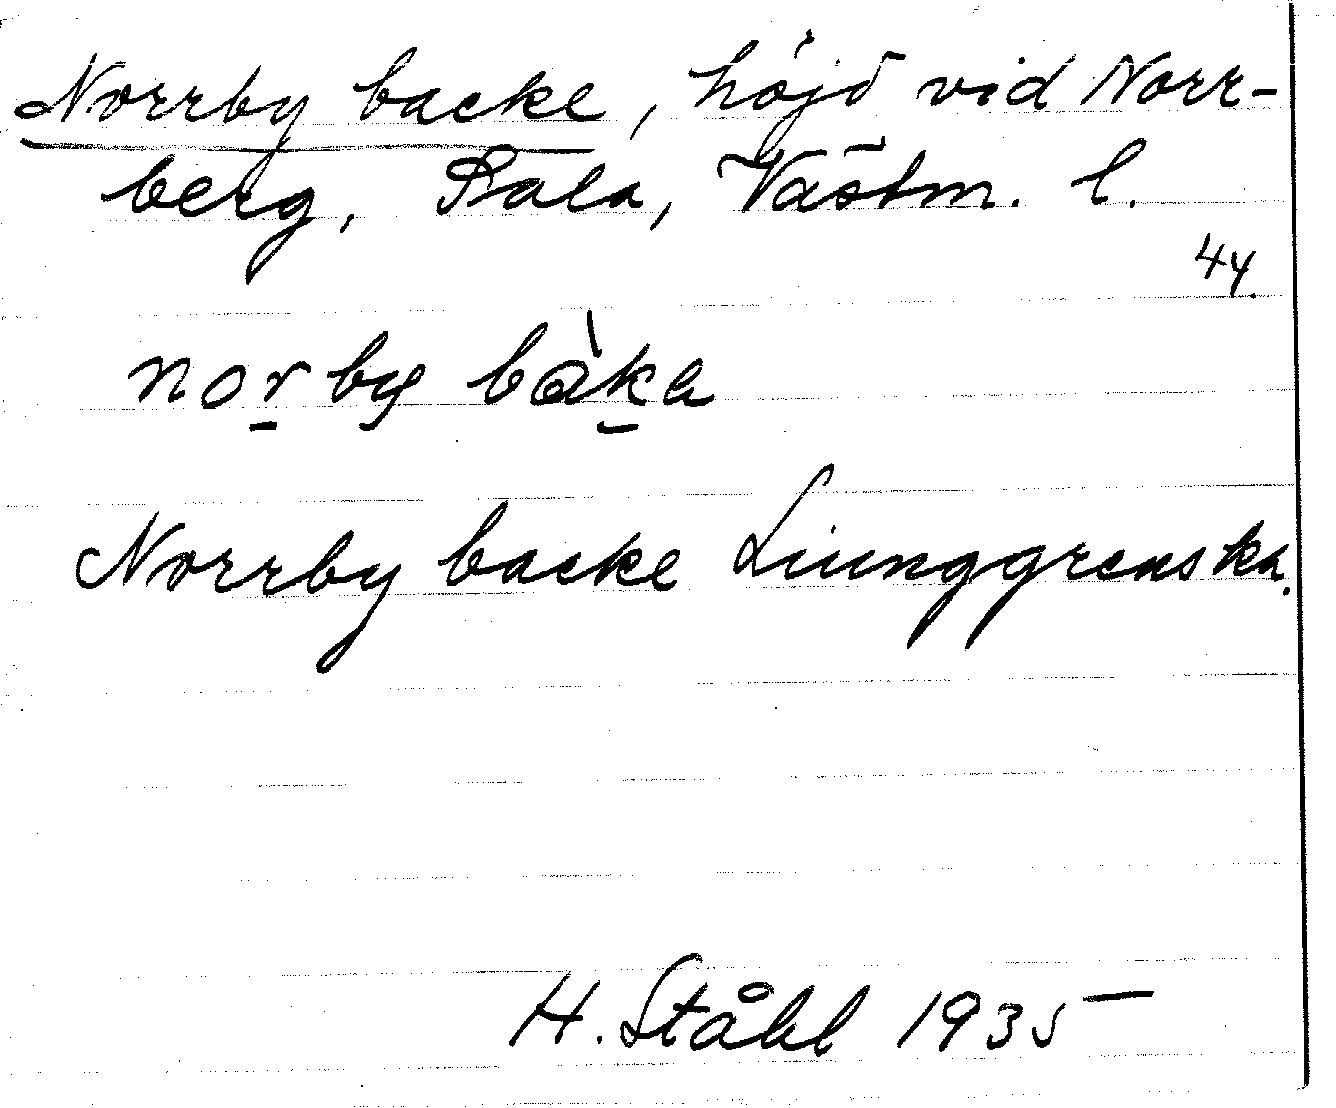 Norrby backe, höjd vid Norr-
berg, Sala, Västm. l.
4y.
norby bàka
Norrby backe Liunggrenska.
H. Ståhl 1935